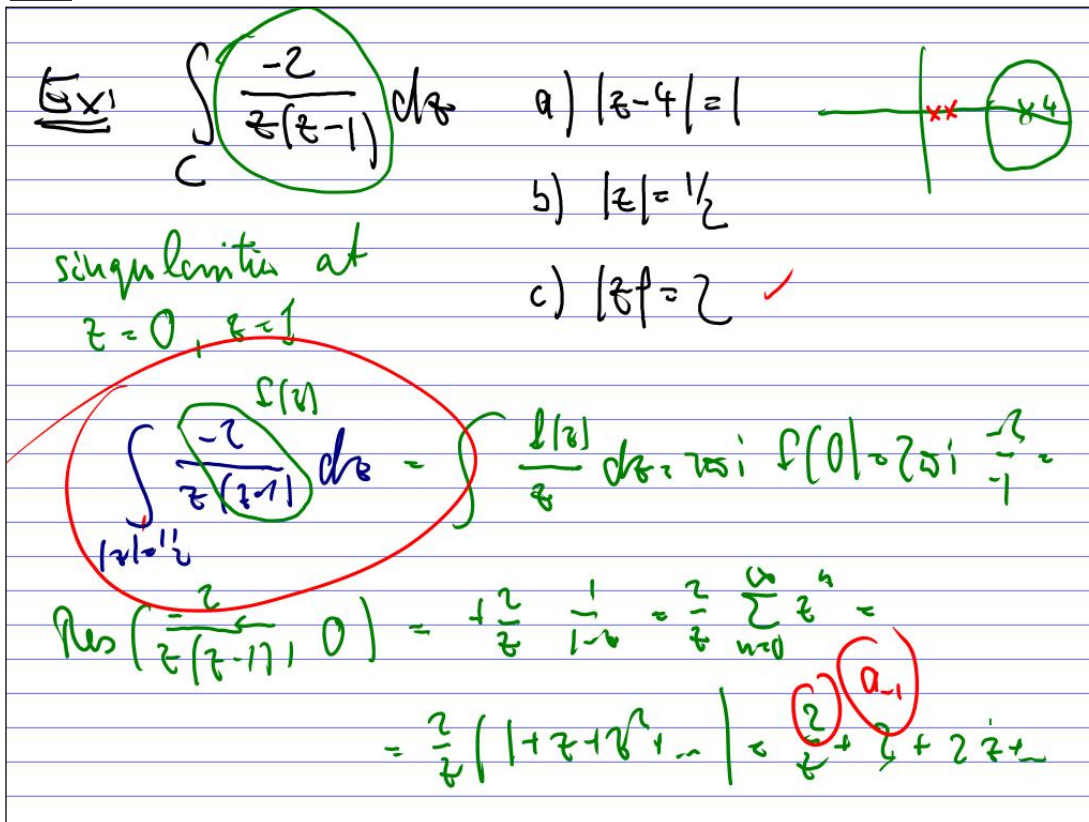 Ex: ∫_C -2/(z(z-1)) dz a) |z-4|=1
4
b) |z|=1/2
c) |z|=2 ✓
singularities at
z=0, z=1
f(z)
∫_{|z|=1/2} -2/(z(z-1)) dz = ∫ f(z)/z dz = 2πi f(0) = 2πi -2/-1 =
Res(-2/(z(z-1)), 0) = +2/z 1/(1-z) = 2/z ∑_{n=0}^∞ z^n =
a_{-1}
= 2/z (1+z+z²+...) = 2/z + 2 + 2z+...